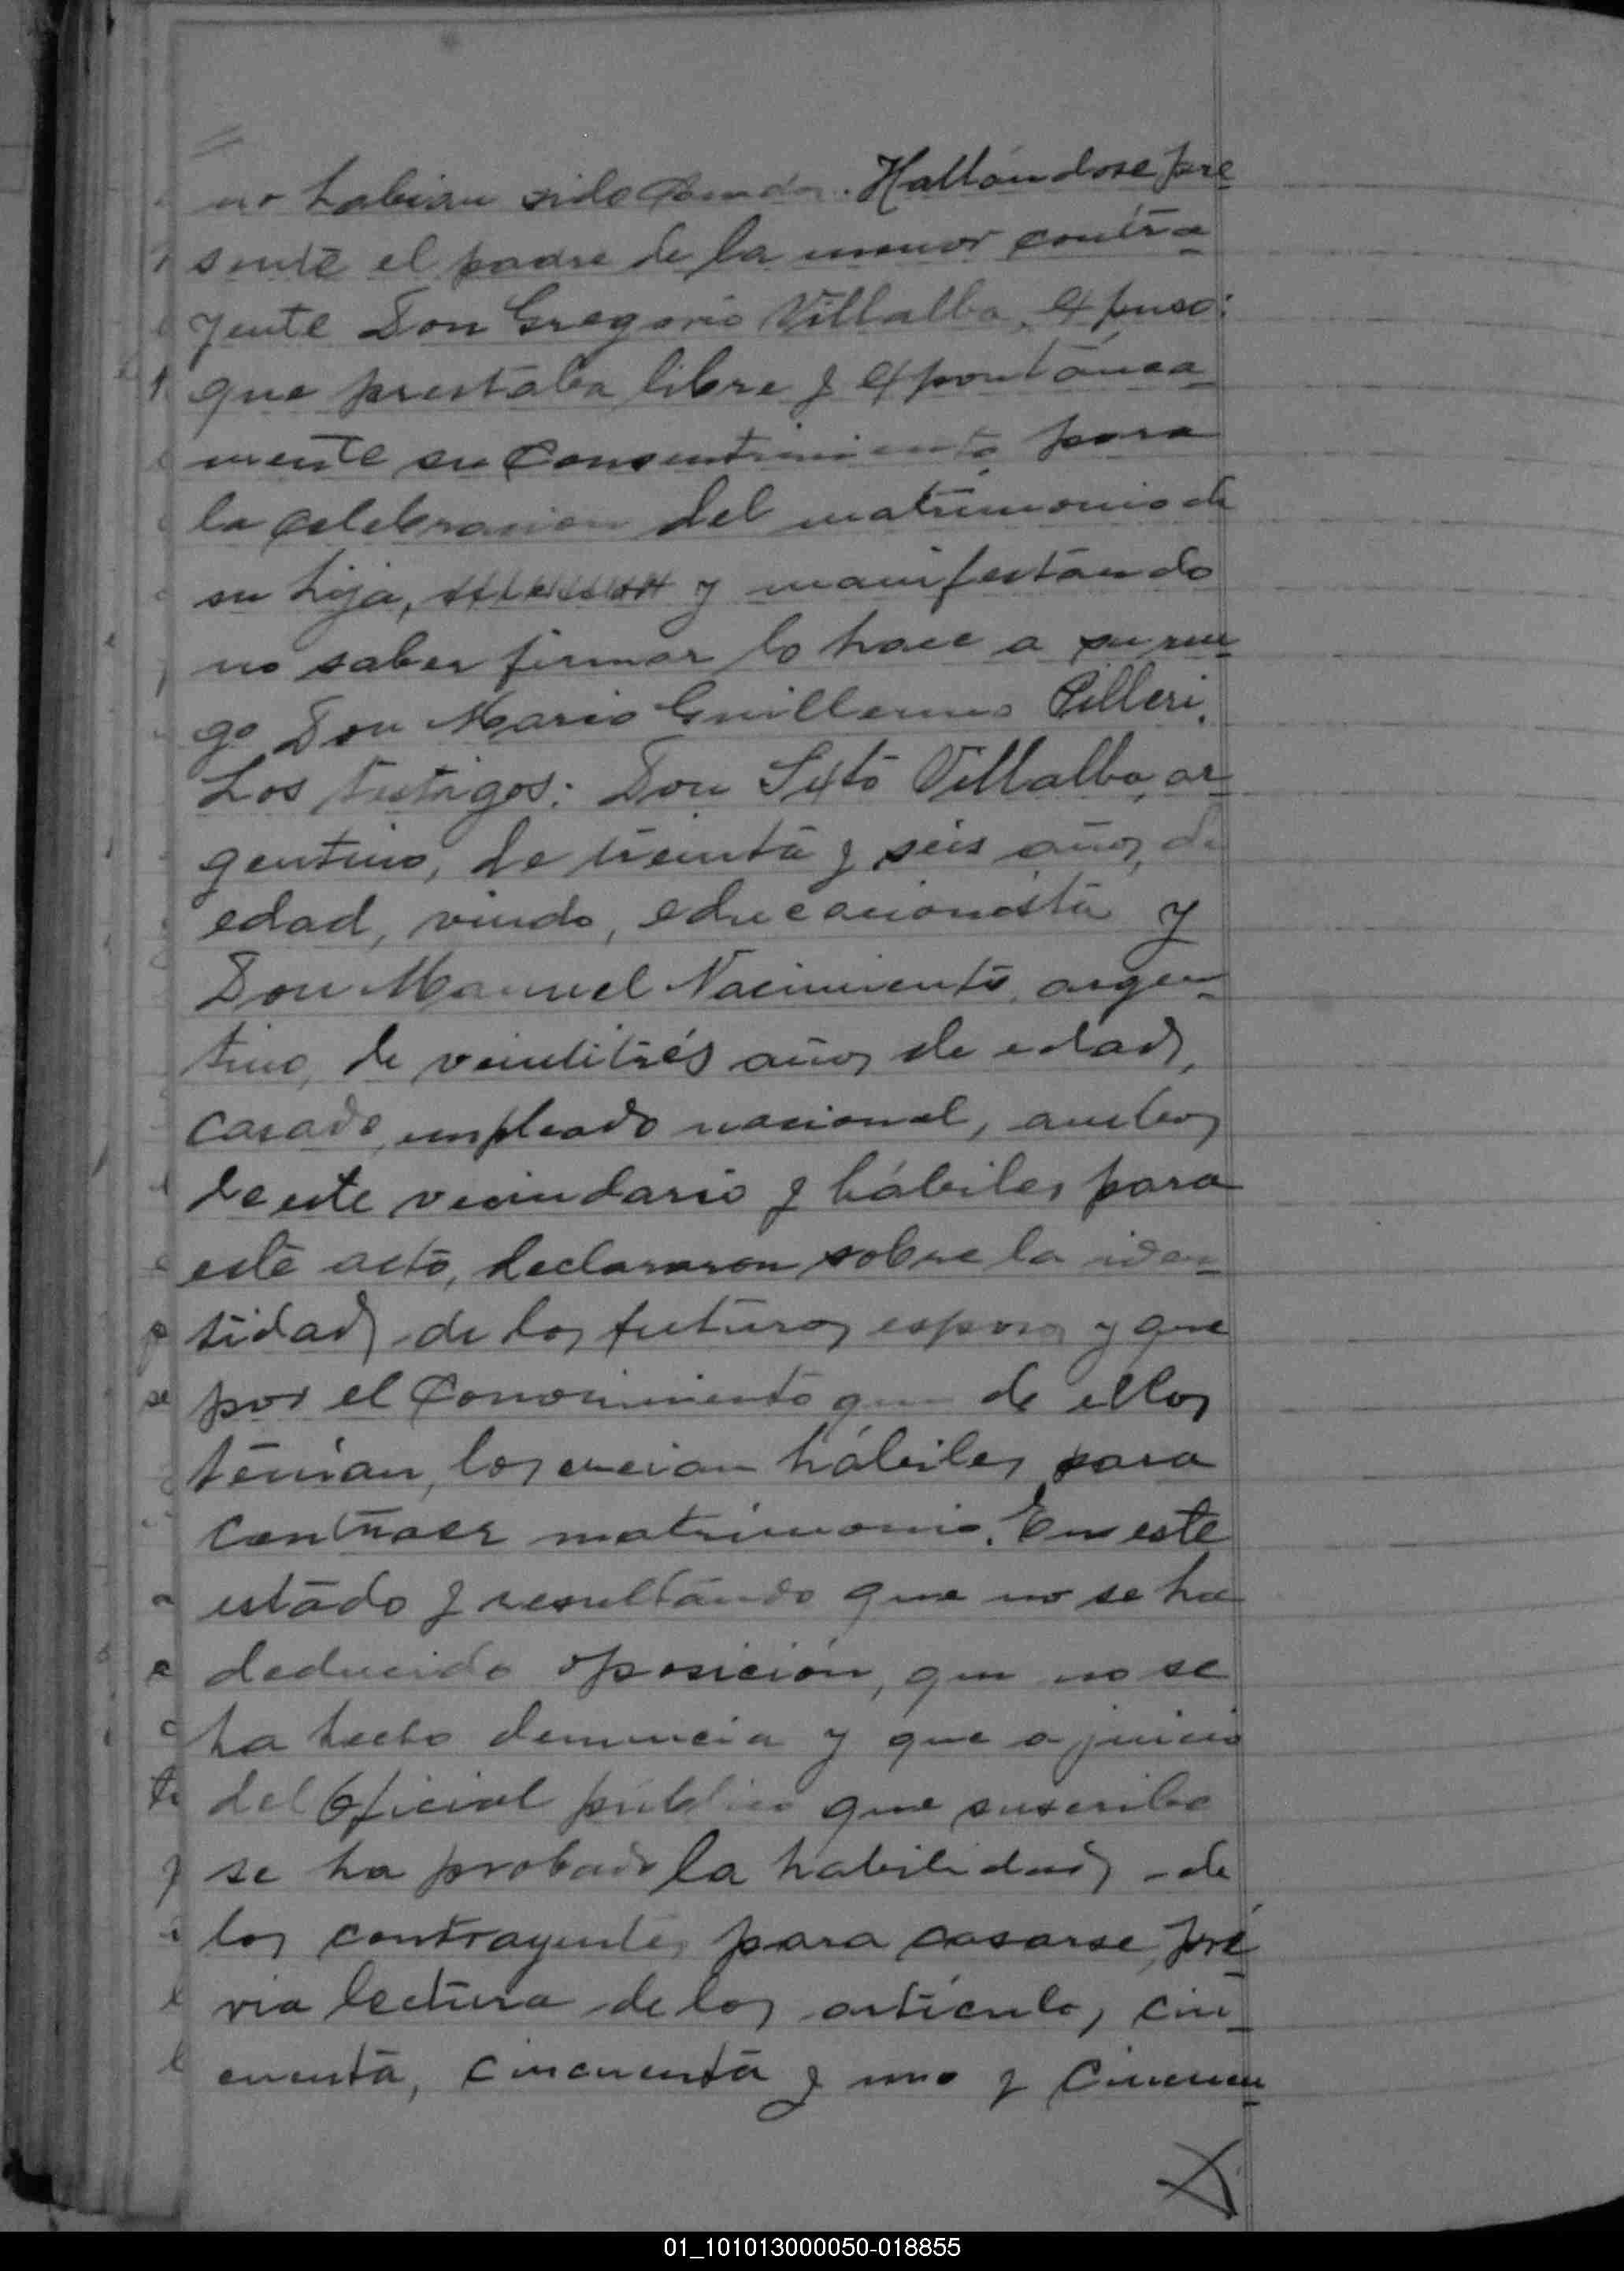 no habian sido casados. Hallándose pre-
sente el padre de la menor contra-
yente Don Gregorio Villalba, expuso:
que prestaba libre y expontánea-
mente su consentimiento para
la celebracion del matrimonio de
su hija, y manifestando
no saber firmar lo hace a su rue-
go Don Mario Guillermo Pilleri.
Los testigos: Don Sixto Villalba, ar-
gentino, de treinta y seis años de
edad, viudo, educacionista y
Don Manuel Nacimiento, argen-
tino, de veintitrés años de edad,
casado, empleado nacional, ambos
de este vecindario y hábiles para
este acto, declararon sobre la iden-
tidad de los futuros esposos y que
por el conocimiento que de ellos
tenían, los creian hábiles para
contraer matrimonio. En este
estado y resultando que no se ha
deducido oposición, que no se
ha hecho denuncia y que a juicio
del Oficial público que suscribe
se ha probado la habilidad de
los contrayentes para casarse, pré-
via lectura de los artículos, cin-
cuenta, cincuenta y uno y cincuen-
01_101013000050-018855